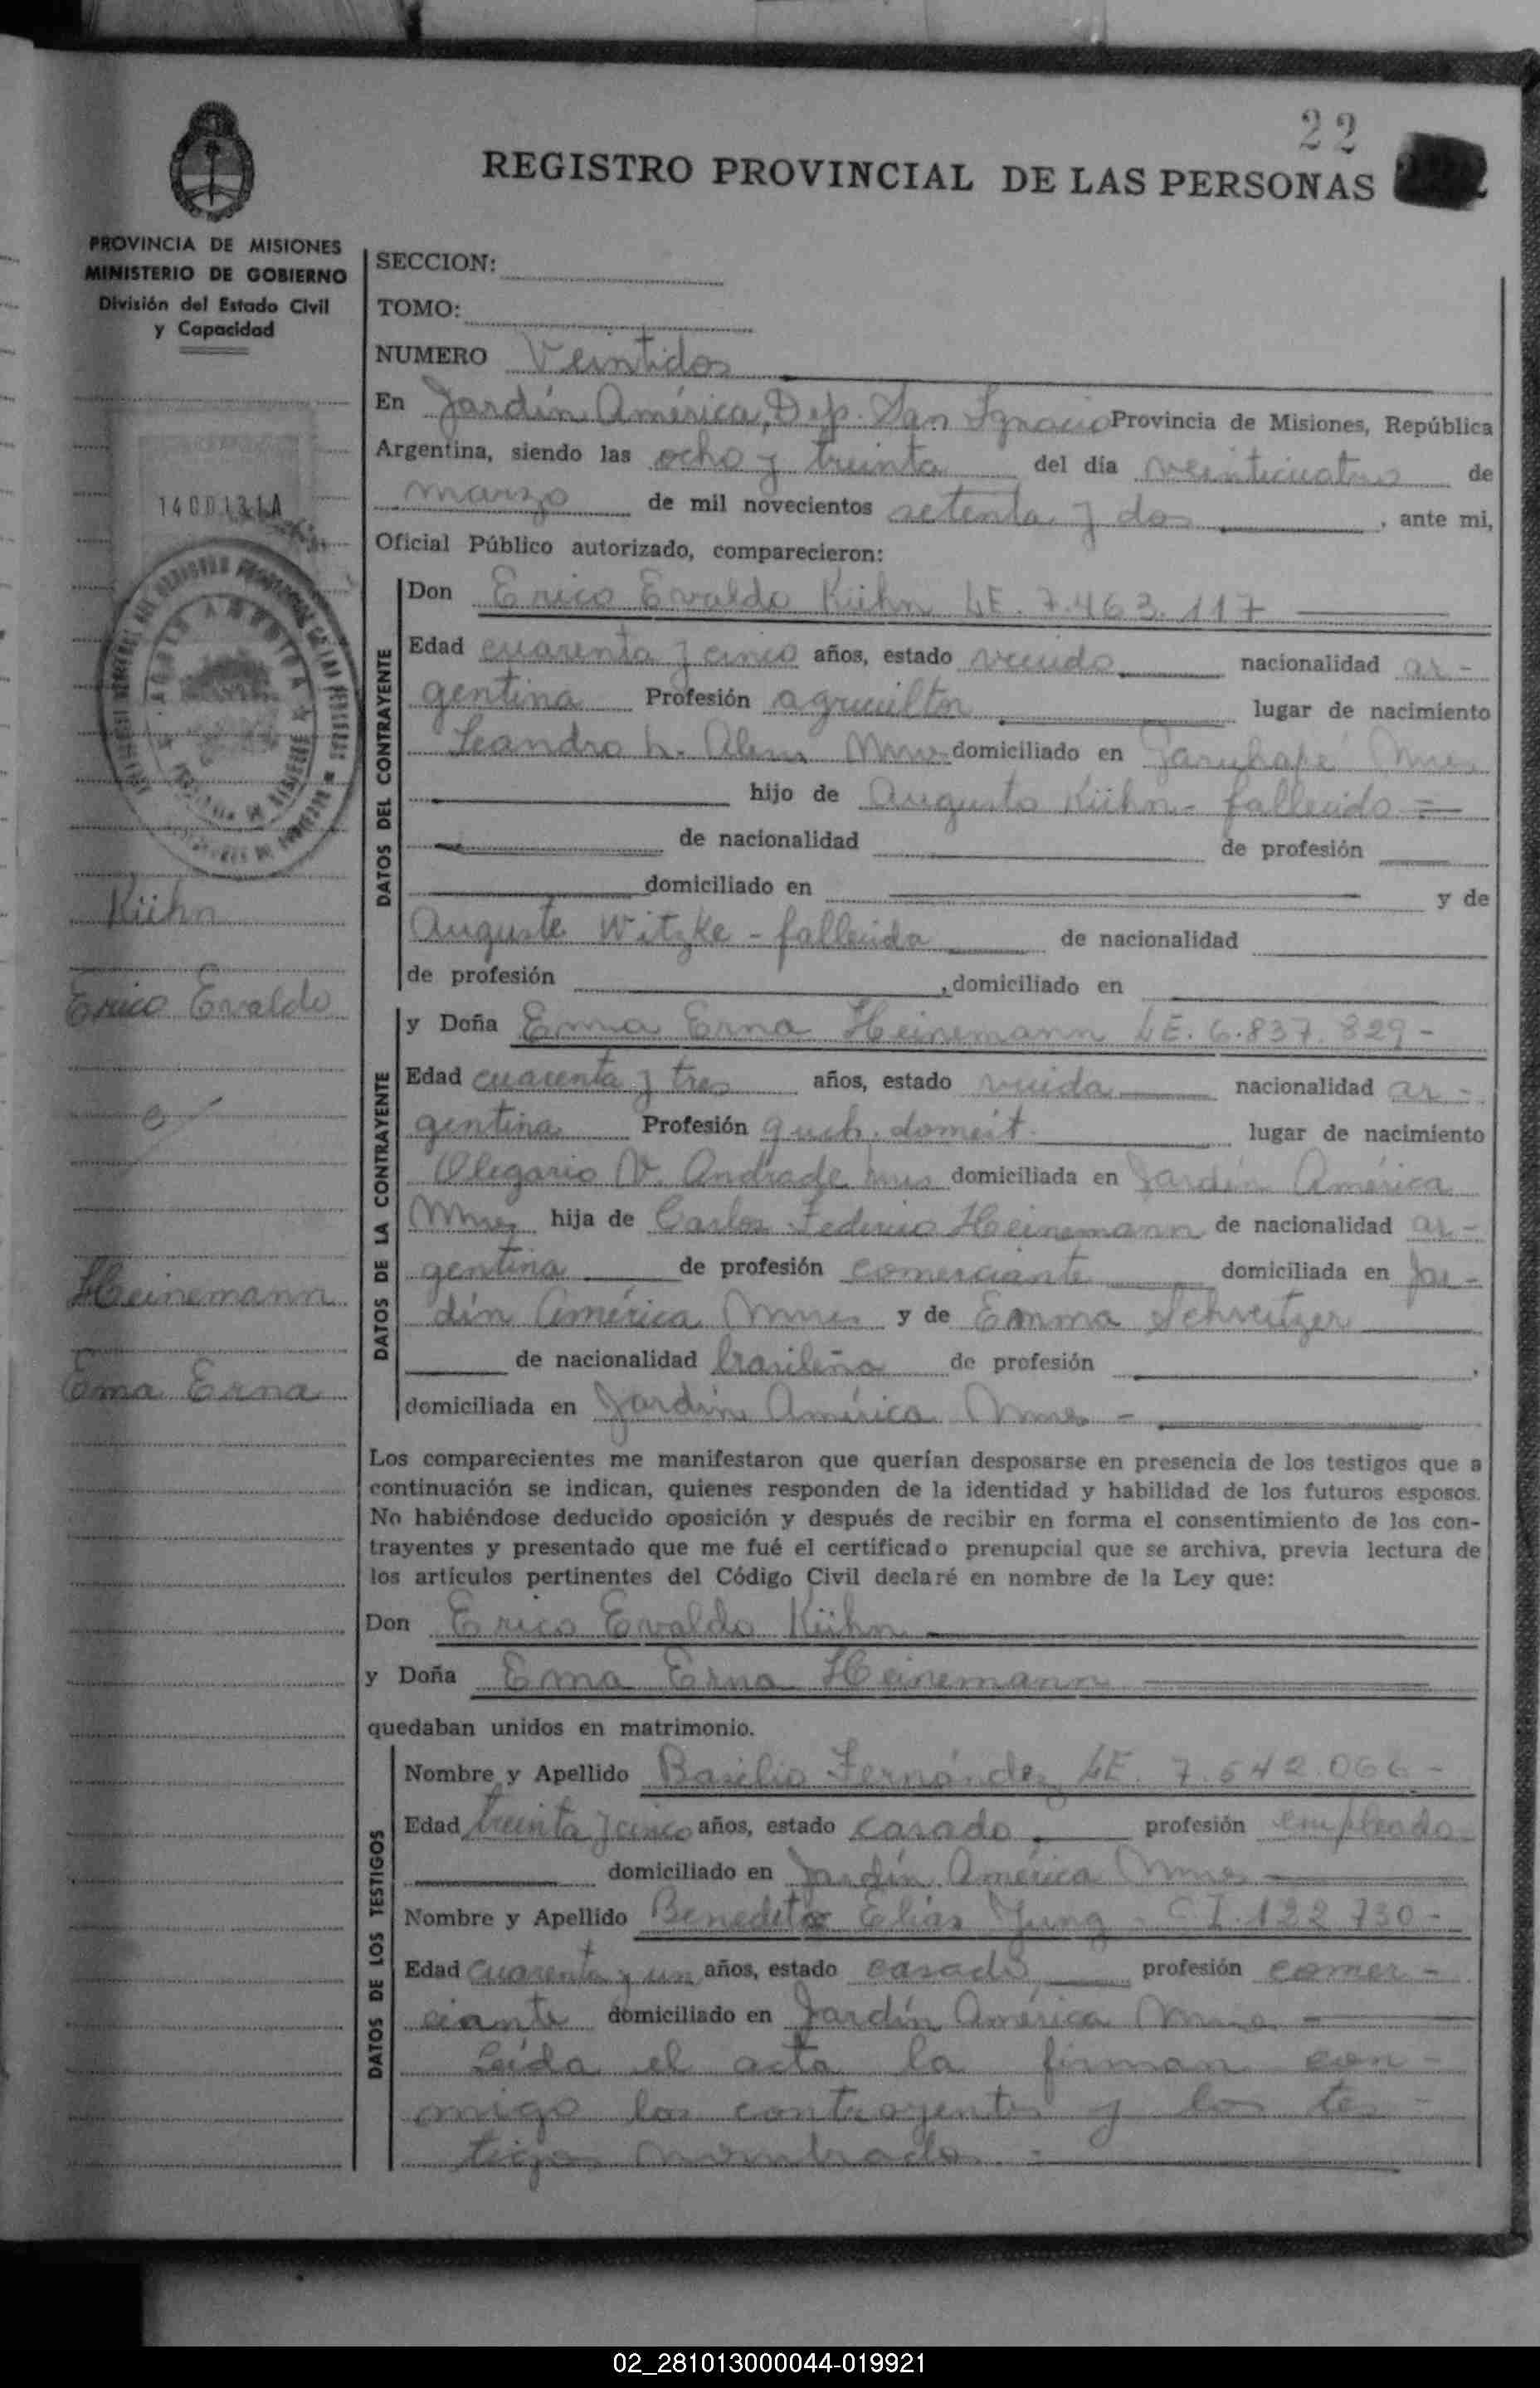 22
REGISTRO PROVINCIAL DE LAS PERSONAS
PROVINCIA DE MISIONES
MINISTERIO DE GOBIERNO
División del Estado Civil
y Capacidad
SECCION:
TOMO:
NUMERO Veintidos
En Jardín América, Dep. San Ignacio Provincia de Misiones, República
Argentina, siendo las ocho y treinta del día veinticuatro de
marzo de mil novecientos setenta y dos, ante mi,
Oficial Público autorizado, comparecieron:
DATOS DEL CONTRAYENTE
Don Erico Evaldo Kühn LE. 7.463.117
Edad cuarenta y cinco años, estado viudo nacionalidad ar-
gentina Profesión agricultor lugar de nacimiento
Leandro N. Alem Mnes domiciliado en Jaruhapé Mnes
hijo de Augusto Kühn - fallecido =
de nacionalidad de profesión
domiciliado en y de
Auguste Witzke - fallecida de nacionalidad
de profesión , domiciliado en
DATOS DE LA CONTRAYENTE
y Doña Ema Erna Heinemann LE. 6.837.829-
Edad cuarenta y tres años, estado viuda nacionalidad ar-
gentina Profesión queh. domést. lugar de nacimiento
Olegario V. Andrade Mnes domiciliada en Jardín América
Mnes hija de Carlos Federico Heinemann de nacionalidad ar-
gentina de profesión comerciante domiciliada en Jar-
dín América Mnes y de Emma Schreitzer
de nacionalidad brasileña de profesión
domiciliada en Jardín América Mnes -
Los comparecientes me manifestaron que querían desposarse en presencia de los testigos que a
continuación se indican, quienes responden de la identidad y habilidad de los futuros esposos.
No habiéndose deducido oposición y después de recibir en forma el consentimiento de los con-
trayentes y presentado que me fué el certificado prenupcial que se archiva, previa lectura de
los artículos pertinentes del Código Civil declaré en nombre de la Ley que:
Don Erico Evaldo Kühn
y Doña Ema Erna Heinemann
quedaban unidos en matrimonio.
DATOS DE LOS TESTIGOS
Nombre y Apellido Basilio Fernández LE. 7.542.066-
Edad treinta y cinco años, estado casado profesión empleado
domiciliado en Jardín América Mnes
Nombre y Apellido Benedito Elias Jung - C.I. 122.730-
Edad cuarenta y un años, estado casado profesión comer-
ciante domiciliado en Jardín América Mnes -
Leída el acta la firman con-
migo los contrayentes y los tes-
tigos nombrados. -
Kühn
Erico Evaldo
c/
Heinemann
Ema Erna
02_281013000044-019921